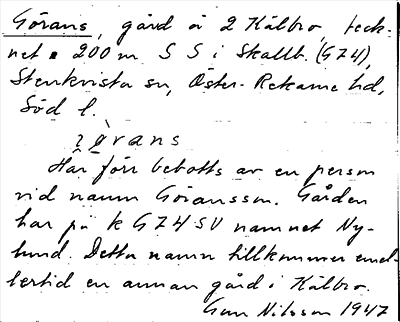 Görans, gård å 2 Kälbro, teck-
net 200 m S S i Skallb. (G74),
Stenkvista sn, Öster-Rekarne hd,
Söd l.
Har förr bebotts av en person
vid namn Göransson. Gården
har på k G74 SV namnet Ny-
lund. Detta namn tillkommer emel-
lertid en annan gård i Kälbro.
Gun Nilsson 1947